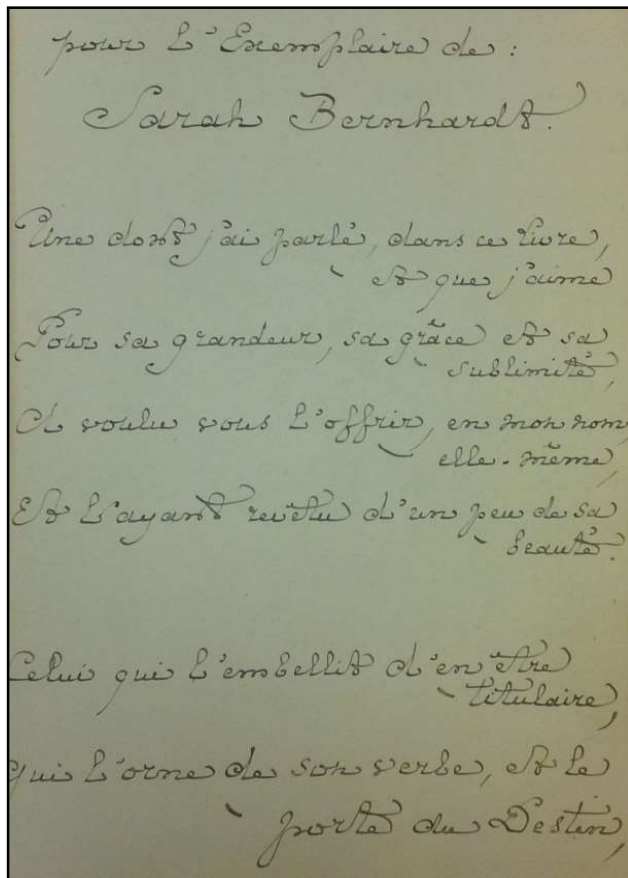 pour l'Exemplaire de :
Sarah Bernhardt.
Une dont j'ai parlé, dans ce livre,
et que j'aime
Pour sa grandeur, sa grâce et sa
sublimité,
A voulu vous l'offrir, en mon nom,
elle-même,
Et l'ayant revêtu d'un peu de sa
beauté.
Celui qui l'embellit d'en être
titulaire,
Qui l'orne de son verbe, et le
porte au Destin,